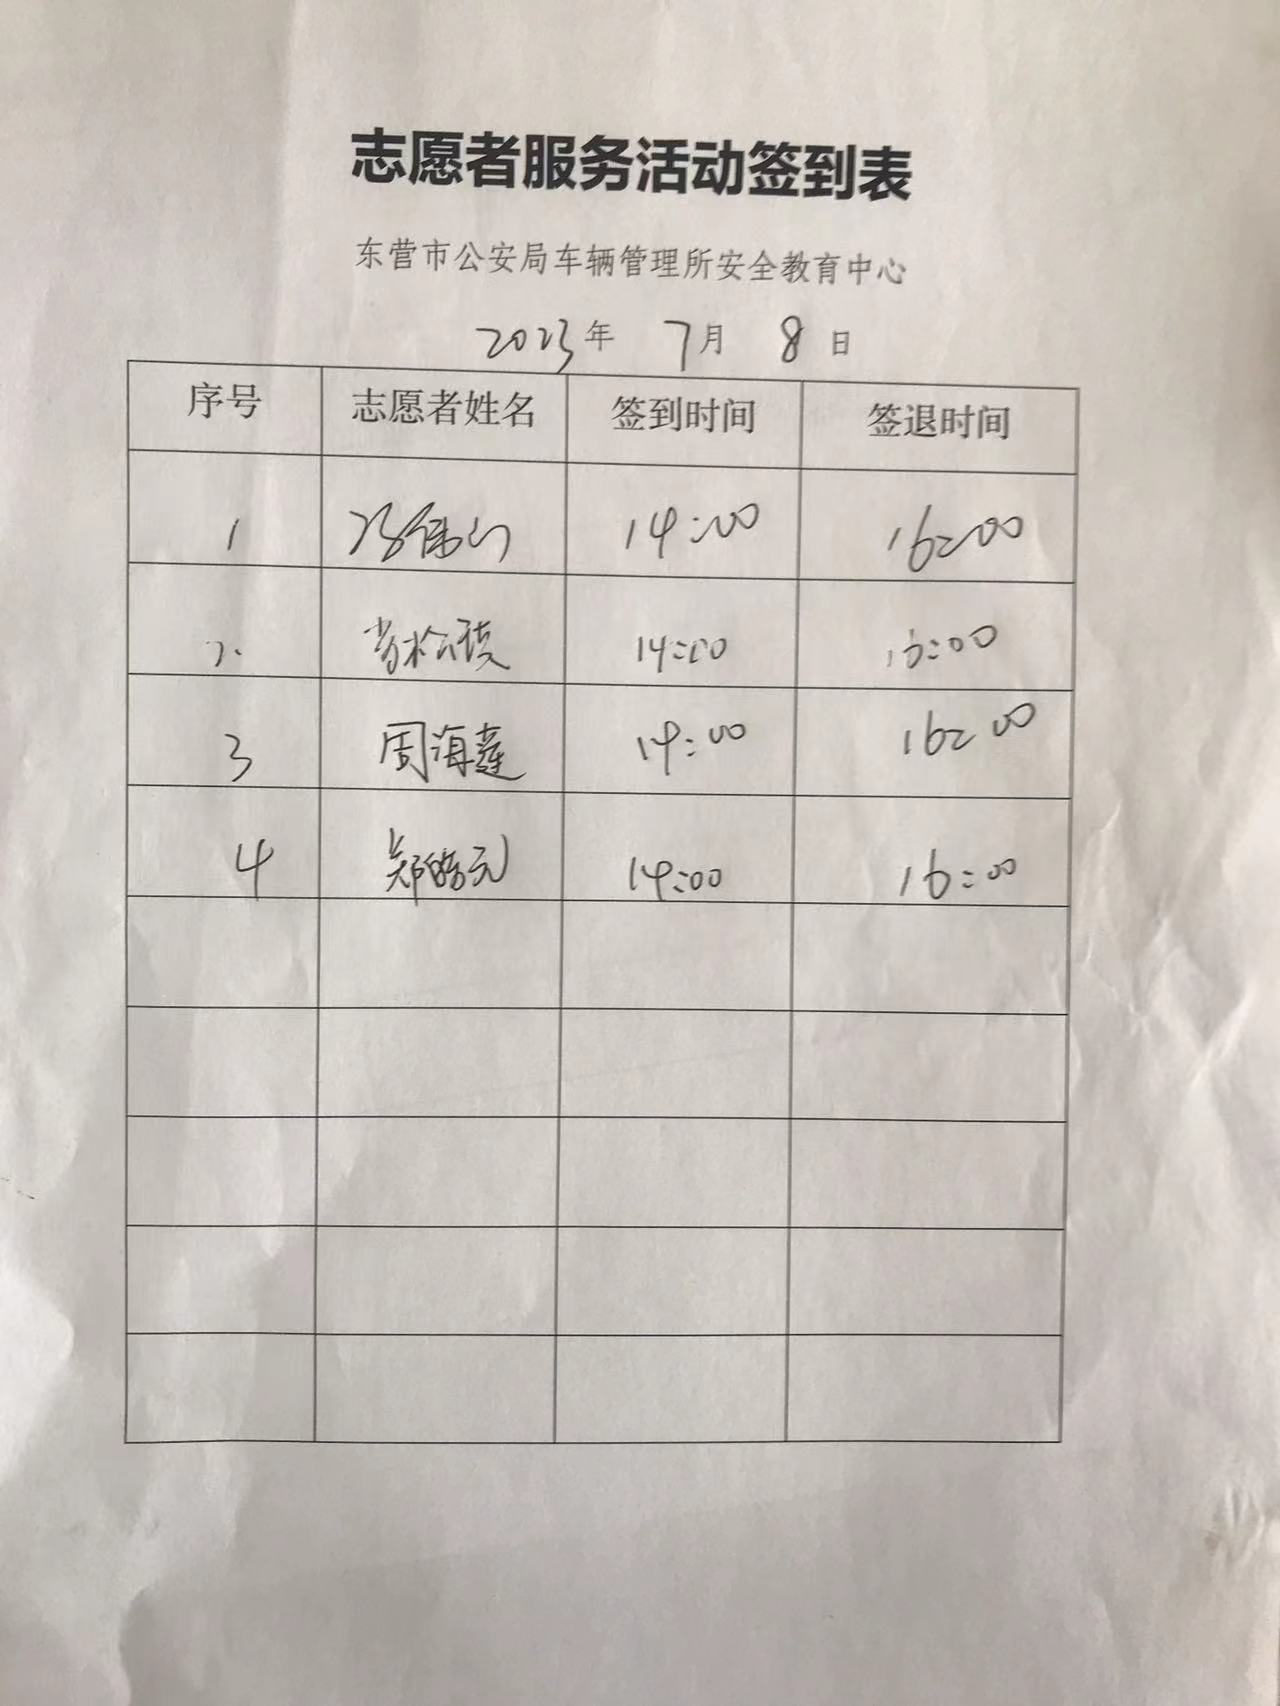 志愿者服务活动签到表
东营市公安局车辆管理所安全教育中心
2023年 7月 8日
序号 志愿者姓名 签到时间 签退时间
1 14:00 16:00
2. 14:00 16:00
3 周海莲 14:00 16:00
4 郑皓元 14:00 16:00